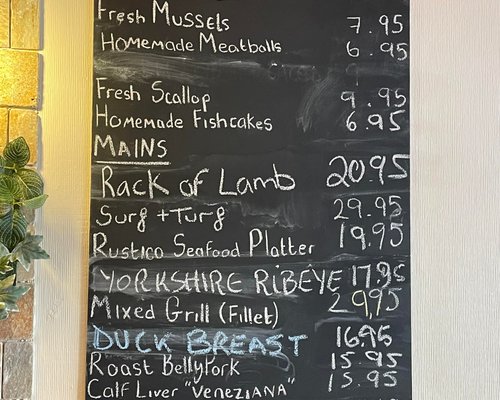 Fresh Mussels 7.95
Homemade Meatballs 6.95
Fresh Scallop 9.95
Homemade Fishcakes 6.95
MAINS
Rack of Lamb 2095
Surf + Turf 29.95
Rustico Seafood Platter 19.95
YORKSHIRE RiBEYE 17.95
Mixed Grill (Fillet) 29,95
DUCK BREAST 1695
Roast BellyPork 15.95
Calf Liver "VENEZIANA" 15.95